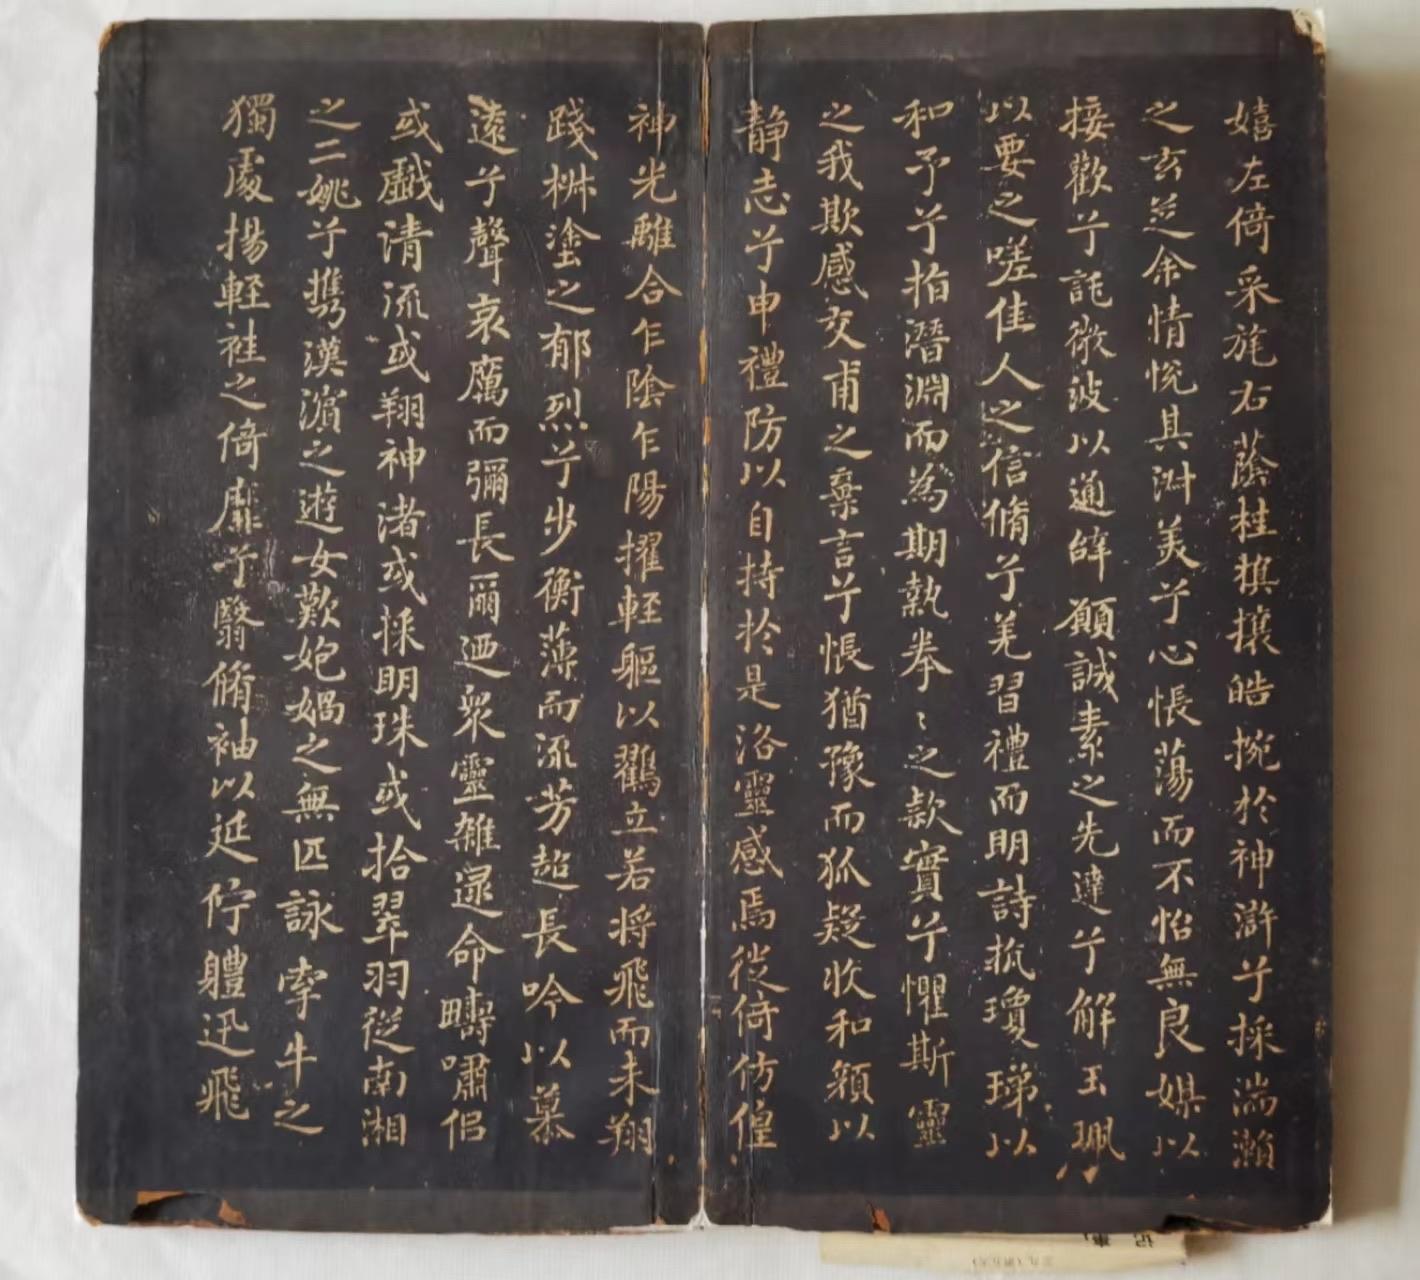 嬉左倚采旄右蔭桂旗攘皓捥於神滸兮採湍瀨
之玄芝余情悅其淑美兮心悵蕩而不怡無良媒以
接歡兮託微波以通辭願誠素之先達兮解玉珮
以要之嗟佳人之信脩兮羌習禮而明詩抗瓊珶以
和予兮指潛淵而為期執拳〻之款實兮懼斯靈
之我欺感交甫之棄言兮悵猶豫而狐疑收和顏以
静志兮申禮防以自持於是洛靈感焉徙倚仿偟
神光離合乍陰乍陽擢輕軀以鸖立若將飛而未翔
踐椒塗之郁烈兮步衡薄而流芳超長吟以慕
遠兮聲哀厲而彌長爾迺眾靈雜遝命疇嘯侣
或戲清流或翔神渚或採明珠或拾翠羽從南湘
之二姚兮攜漢濱之遊女歎匏媧之無匹詠牽牛之
獨處揚輕袿之倚靡兮翳脩袖以延佇體迅飛